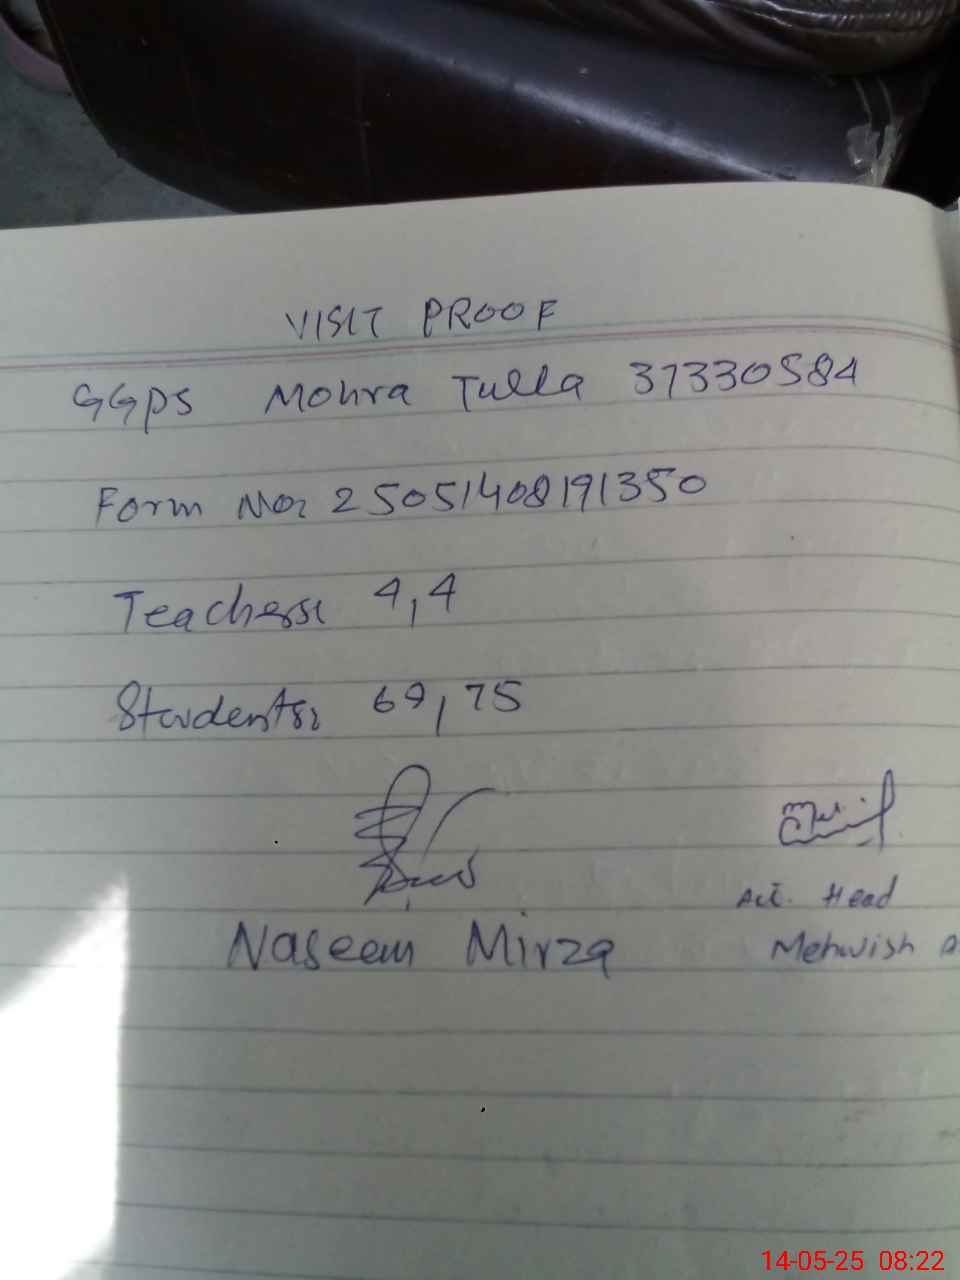 VISIT PROOF
GGPS Mohra Tulla 37330584
Form No: 25051408191350
Teachers: 4,4
Students: 69,75
Act. Head
Naseem Mirza Mehwish
14-05-25 08:22